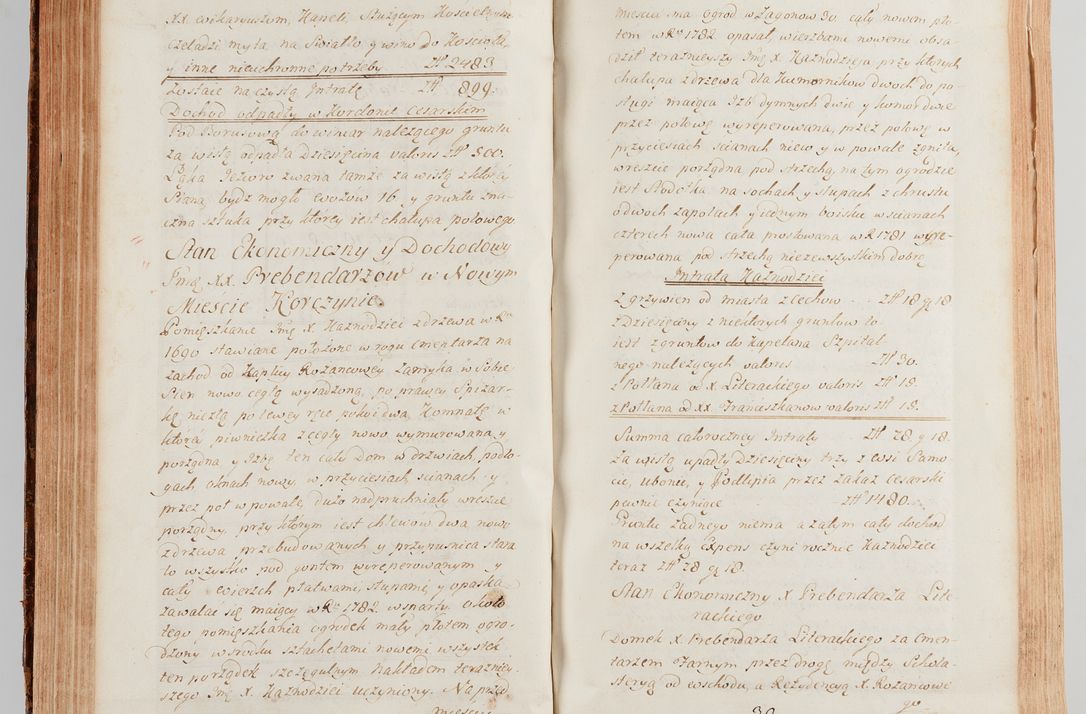 XX wikaryuszom, Kapeli, Służącym Kościelnym
Czeladzi myta, na Swiatło y wino do Kościoła,
y inne nieuchronne potrzeby Zł 2483
Zostaie na czystą Intratę Zł 899.
Dochod odpadły w Kordonie Cesarskim
Pod Borusową do winiar należącego gruntu
za wisłą odpadła Dziesięcina valoris Zł 500.
Łąka Jezoro zwana tamże za wisłą z ktorey
Siana bydz mogło wozów 16 y gruntu zna-
czna sztuka przy ktorey iest chałupa połowego
Stan Ekonomiczny y Dochodowy
Jmię XX. Prebendarzow w Nowym
Mieście Korczynie.
Pomięszkanie Jmę X. Kaznodziei z drzewa w Ru
1690 stawiane położone w rogu cmentarza na
zachod od Kaplicy Rożancowey zamyka w Sobie
Sien nowo cegłą wysadzoną, po prawey Spizar-
kę niezłą po lewey ręce pokoi dwa, Komnatę w
ktorey piwniczka z cegły nowo wymurowana y
porządna y Izbę ten cały Dom w drzwiach, podło-
gach, oknach nowy, w przyciesiach scianach y
przez poł w powale dużo nadpruchniały wreszcie
porządny, przy ktorym iest chlewow dwa nowo
z drzewa przebudowanych y przypusnica stara
to wszystko pod gontem wyreperowanym y
cały wierzch płatwami, stupami, y opaska
zawalac się maiący w Ru 1782 wsparty. około
tego pomięszkania ogrodek mały płotem ogro-
dzony w srodku sztachetami nowemi wszystek
ten porządek szczegulnym nakładem terazniey-
szego Jmę X. Kaznodziei uczyniony. Naprzod
miescie
miescu ma ogrod w Zagonow 30. cały nowem pło-
tem w Ru 1782 opasał, wierzbami nowemi obsa-
dził teraznieyszy Jmę X Kaznodzieja przy ktorych
chałupa z drzewa dla Kumornikow dwoch do po-
sługi maiąca Izb dymnych dwie y komor dwie
przez połowę wyreperowana, przez połowę w
przyciesiach scianach nieco y w powale zgniła,
wreszcie porządna, pod strzechą, na tym ogrodzie
iest Stodołka na sochach y stupach z chrustu
o dwoch zapolach y iednym boisku w scianach
czterech nowa cała prostowana w R 1781 wyre-
perowana pod strzechą niezewszystkim dobrą
Intrata Kaznodziei
Z grzywien od miasta z Cechow - - Zł 18 g 18
z Dziesięciny z niektorych gruntow to
iest z gruntow do Kapelana Szpital-
nego należących valoris - Zł 30.
z Pottana od X Literackiego valoris Zł 15.
z Pottana od XX. Franciszkanow valoris Zł 15.
Summa całoroczney Intraty - Zł 78. g 18.
Za wisłą upadły Dziesięciny trzy z wsi Samo-
cic, ubonie, y Podlipia przez zakaz cesarski
pewnie czyniące - Zł 1480.
Gruntu żadnego niema a zatym cały dochod
na wszelką Expens czyni rocznie Kaznodziei
teraz Zł 78 g 18.
Stan Ekonomiczny X Prebendarza Lite-
rackiego
Domek X. Prebendarza Literackiego za Cmen-
tarzem Farnym przez drogę między Schola-
steryą od wschodu, a Rezydencyą X. Rożancowe-
go
30